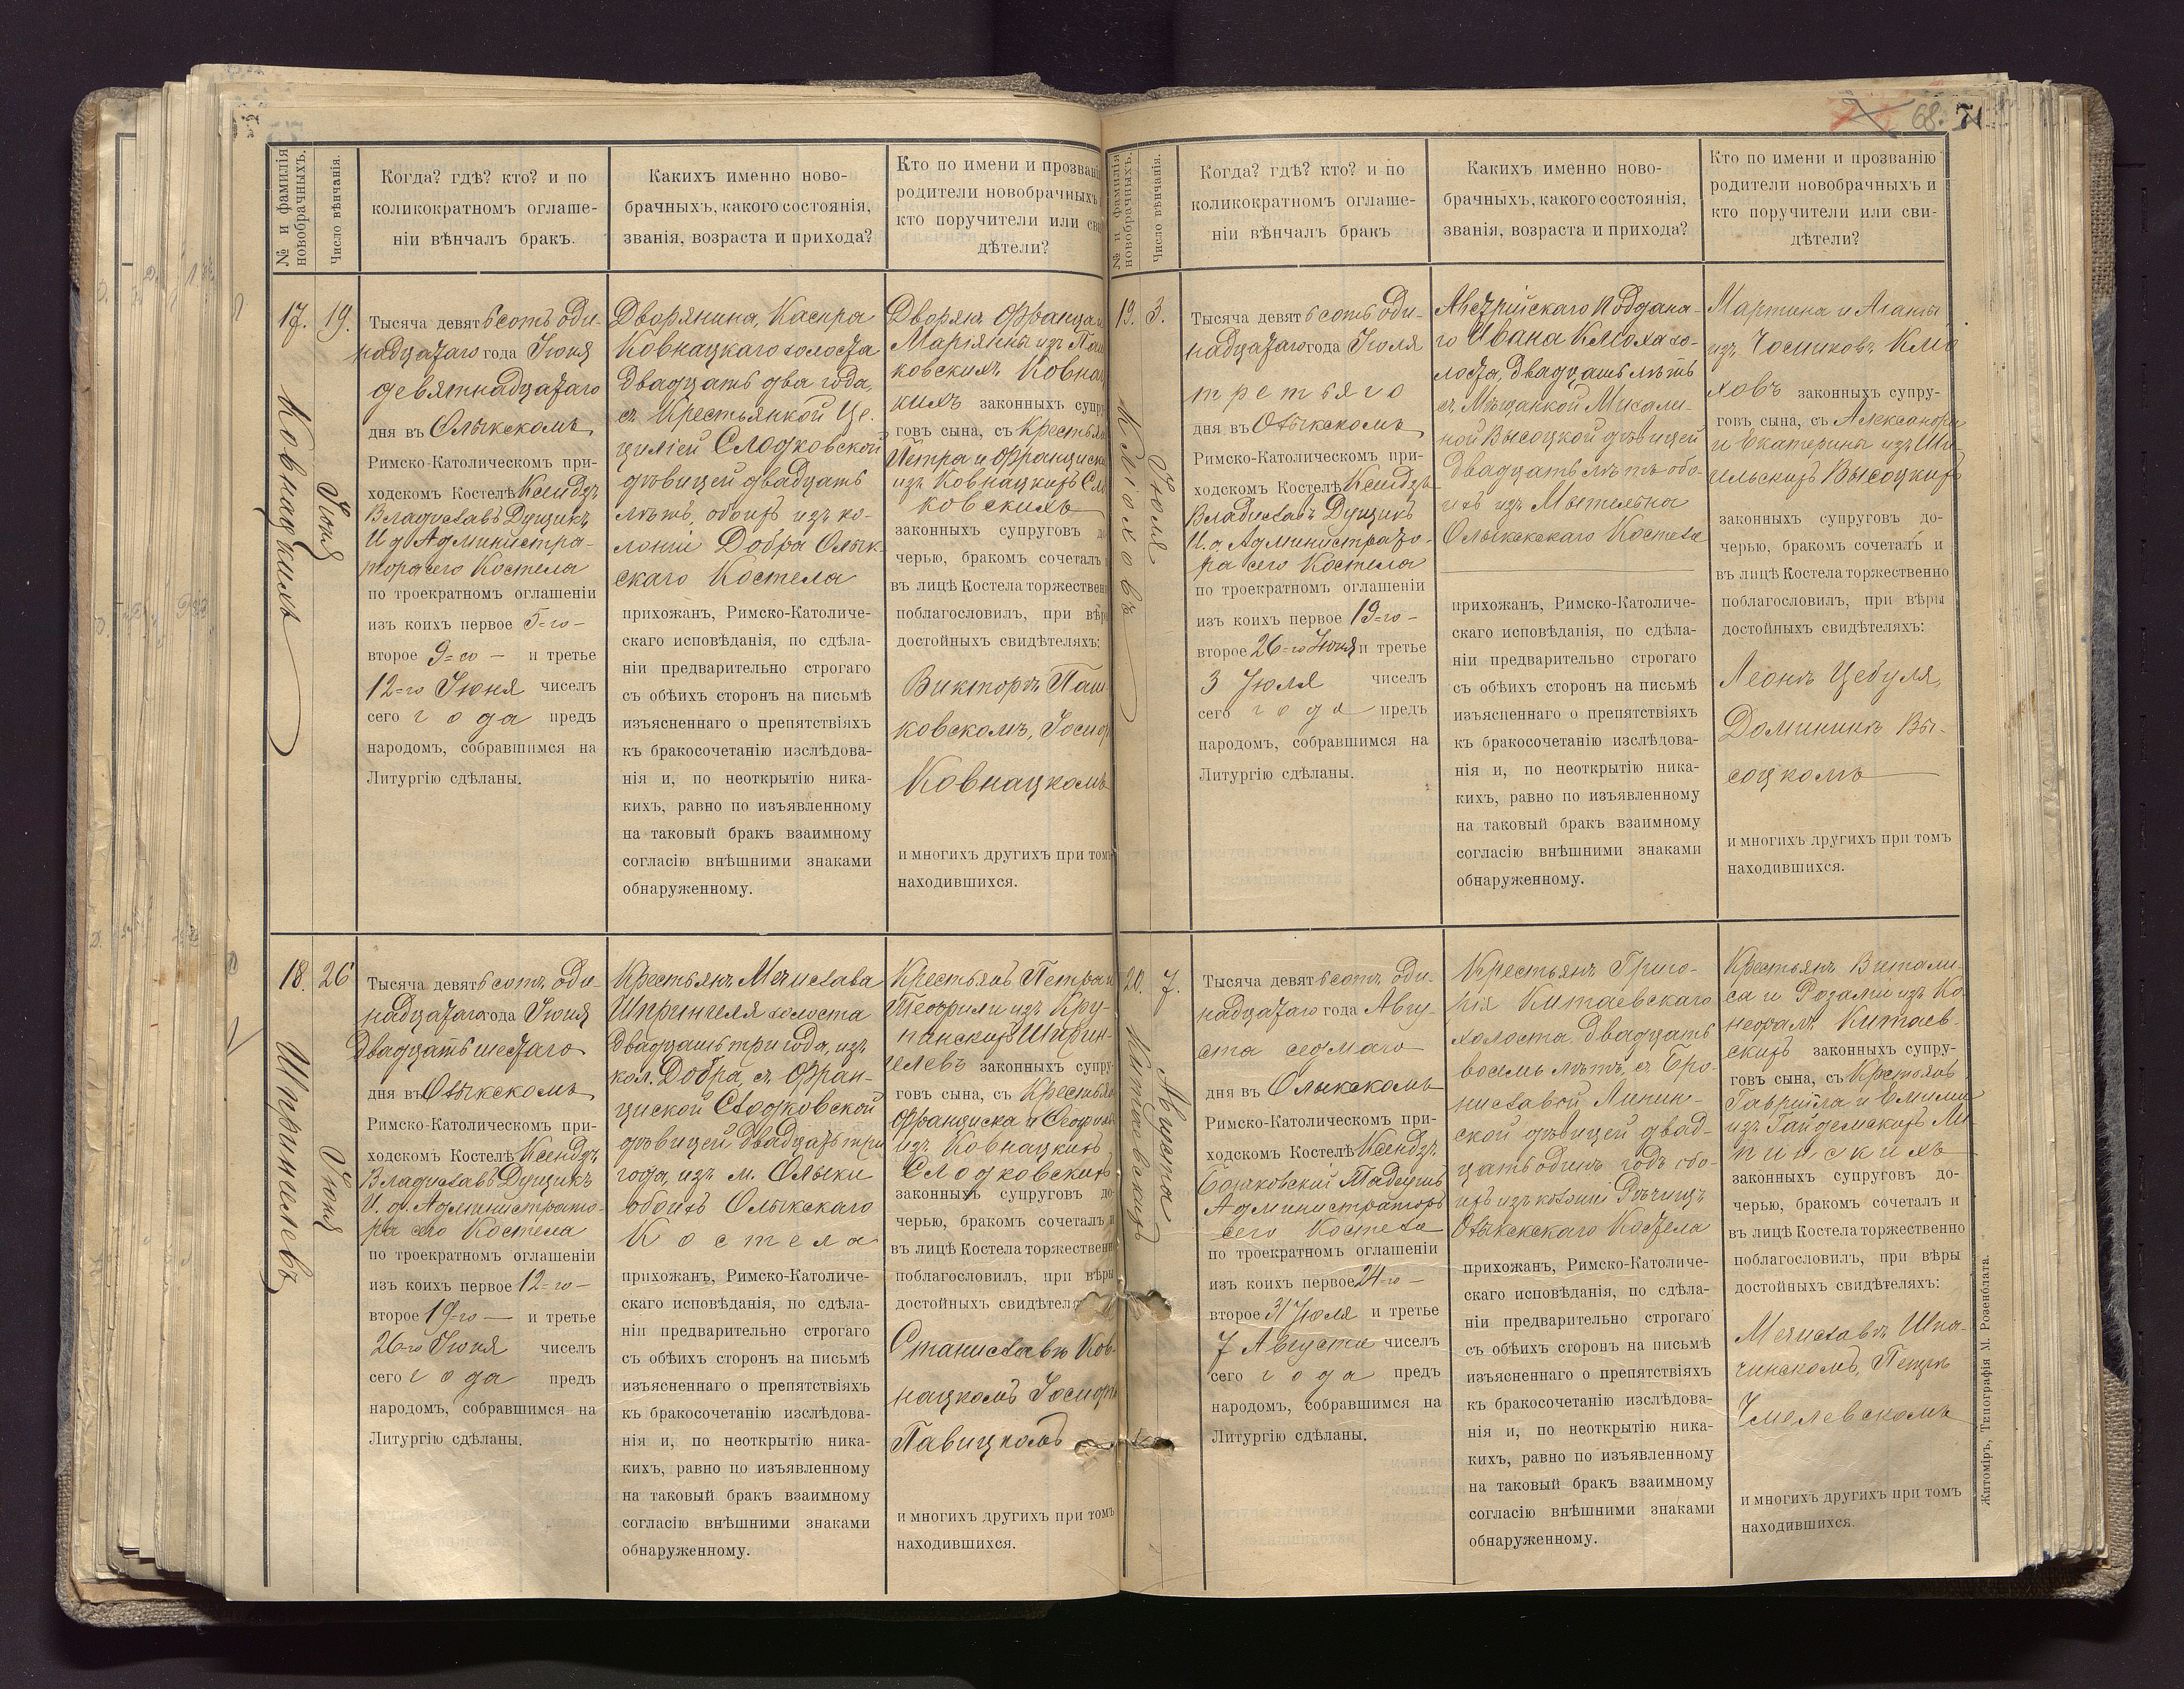 68. 71
№ и фамилія новобрачныхъ.
Число вѣнчанія.
Когда? гдѣ? кто? и по
коликократномъ оглаше-
ніи вѣнчалъ бракъ.
Какихъ именно ново-
брачныхъ, какого состоянія,
званія, возраста и прихода?
Кто по имени и прозванію
родители новобрачныхъ
кто поручители или сви
дѣтели?
17.
19.
Ковнацкихъ
Іюня
Тысяча девятьсотъ оди-
надцатаго года Іюня
девятнадцатаго
дня въ Олыкскомъ
Римско-Католическомъ при-
ходскомъ Костелѣ Ксендзъ
Владиславъ Дущикъ
И. д. Администра-
тора сего Костела
по троекратномъ оглашеніи
изъ коихъ первое 5-го
второе 9-го — и третье
12-го Іюня чиселъ
сего года предъ
народомъ, собравшимся на
Литургію сдѣланы.
Дворянина, Каспра
Ковнацкаго холоста
двадцать два года,
съ Крестьянкой Це-
циліей Слодковской
дѣвицей двадцать
лѣтъ, обоихъ изъ ко-
лоніи Добра Олык-
скаго Костела
прихожанъ, Римско-Католиче-
скаго исповѣданія, по сдѣла-
ніи предварительно строгаго
съ обѣихъ сторонъ на письмѣ
изъясненнаго о препятствіяхъ
къ бракосочетанію изслѣдова-
нія и, по неоткрытію ника-
кихъ, равно по изъявленному
на таковый бракъ взаимному
согласію внѣшними знаками
обнаруженному.
Дворянъ Франца и
Маріянны изъ Паш
ковскихъ Ковнац
кихъ законныхъ супру
говъ сына, съ Крестьянъ
Петра и Франциски
изъ Ковнацкихъ Сло
ковскихъ
законныхъ супруговъ до
черью, бракомъ сочеталъ
въ лицѣ Костела торжественн
поблагословилъ, при вѣры
достойныхъ свидѣтеляхъ:
Викторѣ Паш-
ковскомъ, Іосифѣ
Ковнацкомъ
и многихъ другихъ при томъ
находившихся.
18.
26
Шпрингелевъ
Іюня
Тысяча девятьсотъ оди-
надцатаго года Іюня
двадцать шестаго
дня въ Олыкскомъ
Римско-Католическомъ при-
ходскомъ Костелѣ Ксендзъ
Владиславъ Дущикъ
И. д. Администрато-
ра сего Костела
по троекратномъ оглашеніи
изъ коихъ первое 12-го —
второе 19-го — и третье
26-го Іюня чиселъ
сего года предъ
народомъ, собравшимся на
Литургію сдѣланы.
Крестьянъ Мечислава
Шпрингеля холоста
двадцать три года, изъ
кол. Добра, съ Фран-
циской Слодковской
дѣвицей двадцать три
года, изъ м. Олыки
обоихъ Олыкскаго
Костела
прихожанъ, Римско-Католиче-
скаго исповѣданія, по сдѣла-
ніи предварительно строгаго
съ обѣихъ сторонъ на письмѣ
изъясненнаго о препятствіяхъ
къ бракосочетанію изслѣдова-
нія и, по неоткрытію ника-
кихъ, равно по изъявленному
на таковый бракъ взаимному
согласію внѣшними знаками
обнаруженному.
Крестьянъ Петра и
Теофили изъ Кру-
панскихъ Шприн-
гелевъ законныхъ супру
говъ сына, съ Крестьянъ
Франциска и
изъ Ковнацкихъ
Слодковскихъ
законныхъ супруговъ до-
черью, бракомъ сочеталъ и
въ лицѣ Костела торжественно
поблагословилъ, при вѣры
достойныхъ свидѣтеля
Станиславѣ Ков-
нацкомъ Іосифѣ
Павицкомъ
и многихъ другихъ при томъ
находившихся.
№ и фамилія новобрачныхъ.
Число вѣнчанія.
Когда? гдѣ? кто? и по
коликократномъ оглаше-
ніи вѣнчалъ бракъ
Какихъ именно ново-
брачныхъ, какого состоянія,
званія, возраста и прихода?
Кто по имени и прозванію
родители новобрачныхъ и
кто поручители или сви-
дѣтели?
19.
3.
Клюховъ
Іюля
Тысяча девятьсотъ оди-
надцатаго года Іюля
третьяго
дня въ Олыкскомъ
Римско-Католическомъ при-
ходскомъ Костелѣ Ксендзъ
Владиславъ Дущикъ
И. д. Администрато-
ра сего Костела
по троекратномъ оглашеніи
изъ коихъ первое 19-го —
второе 26-го Іюня и третье
3 Іюля чиселъ
сего года предъ
народомъ, собравшимся на
Литургію сдѣланы.
Австрійскаго подданна-
го Ивана Клюха хо-
лоста, двадцать лѣтъ
съ Мѣщанкой Михали-
ной Высоцкой дѣвицей
двадцать лѣтъ обо-
ихъ изъ Метельна
Олыкскскаго Костела
прихожанъ, Римско-Католиче-
скаго исповѣданія, по сдѣла-
ніи предварительно строгаго
съ обѣихъ сторонъ на письмѣ
изъясненнаго о препятствіяхъ
къ бракосочетанію изслѣдова-
нія и, по неоткрытію ника-
кихъ, равно по изъявленному
на таковый бракъ взаимному
согласію внѣшними знаками
обнаруженному.
Мартина и Агаты
изъ Клю
ховъ законныхъ супру-
говъ сына, съ Александра
и Екатерины изъ
Высоцкихъ
законныхъ супруговъ до-
черью, бракомъ сочеталъ и
въ лицѣ Костела торжественно
поблагословилъ, при вѣры
достойныхъ свидѣтеляхъ:
Леонъ Цебуля,
Доминикъ Вы-
соцкомъ
и многихъ другихъ при томъ
находившихся.
20.
7.
Китаевскихъ
Августа
Тысяча девятьсотъ оди-
надцатаго года Авгу-
ста седмаго
дня въ Олыкскомъ
Римско-Католическомъ при-
ходскомъ Костелѣ Ксендзъ
Тадеушъ
Администраторъ
сего Костела
по троекратномъ оглашеніи
изъ коихъ первое 24-го —
второе 31 Іюля и третье
7 Августа чиселъ
сего года предъ
народомъ, собравшимся на
Литургію сдѣланы.
Крестьянъ Григо-
рія Китаевскаго
холоста двадцать
восемь лѣтъ, съ Бро-
ниславой Липин-
ской дѣвицей двад-
цать одинъ годъ обо-
ихъ изъ колоніи Рѣчищъ
Олыкскскаго Костела
прихожанъ, Римско-Католиче-
скаго исповѣданія, по сдѣла-
ніи предварительно строгаго
съ обѣихъ сторонъ на письмѣ
изъясненнаго о препятствіяхъ
къ бракосочетанію изслѣдова-
нія и, по неоткрытію ника-
кихъ, равно по изъявленному
на таковый бракъ взаимному
согласію внѣшними знаками
обнаруженному.
Крестьянъ Витали-
са и Розаліи изъ Ко-
Китаев-
скихъ законныхъ супру-
говъ сына, съ Крестьянъ
Гавріила и Емиліи
изъ Гайдемскихъ Ли-
пинскихъ
законныхъ супруговъ до-
черью, бракомъ сочеталъ и
въ лицѣ Костела торжественно
поблагословилъ, при вѣры
достойныхъ свидѣтеляхъ:
Мечиславѣ Шпа-
чинскомъ, Петрѣ
Хмелевскомъ
и многихъ другихъ при томъ
находившихся.
Житоміръ, Типографія М. Розенблата.